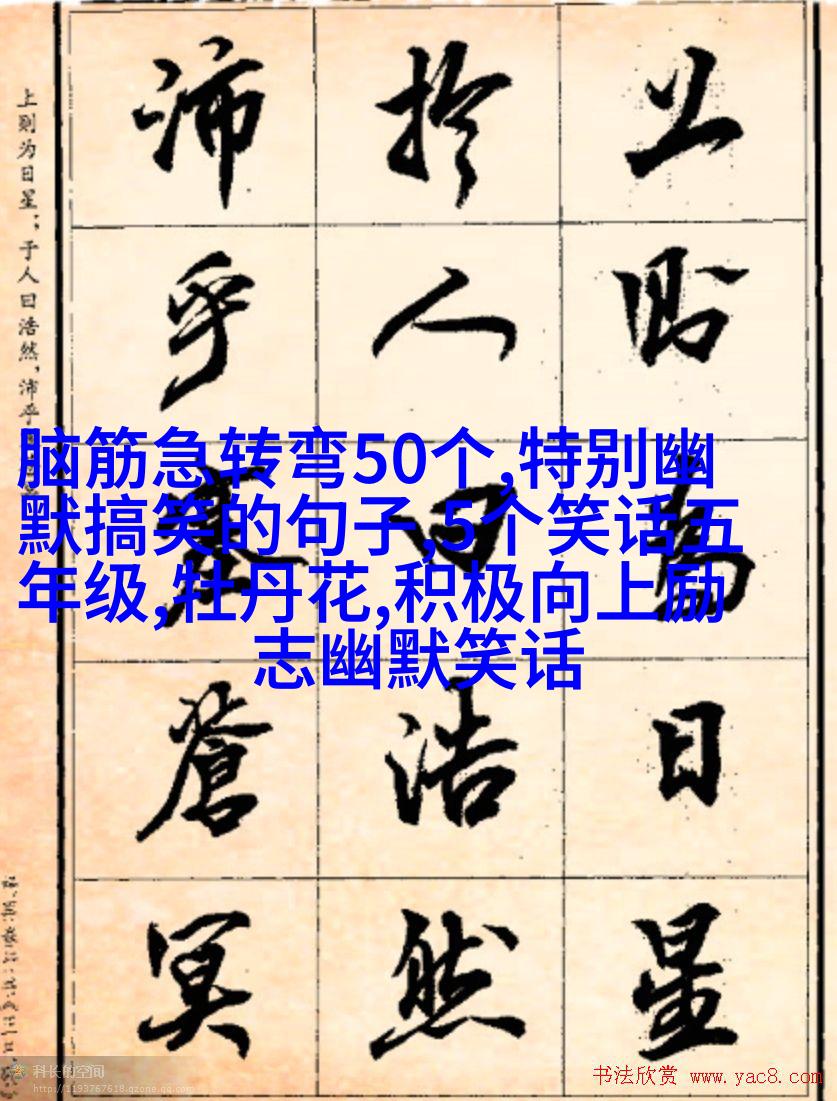 上則為日星
於人曰浩然
沛乎塞蒼冥
上则为日星；于人曰浩然，沛乎
脑筋急转弯50个,特别幽
默搞笑的句子,5个笑话五
年级,牡丹花,积极向上励
志幽默笑话
科长的空间
http://1193767618.qzone.qq.com
书法欣赏 www.yac8.com